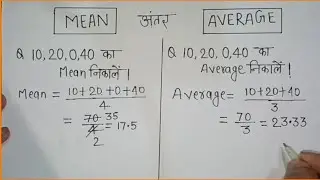 MEAN अंतर AVERAGE
Q 10,20,0,40 का
Mean निकालें!
Mean = 10+20+0+40
4
= 70 35
4 = 17.5
2
Q 10,20,0,40 का
Average निकालें!
Average = 10+20+40
3
= 70
3 = 23.33